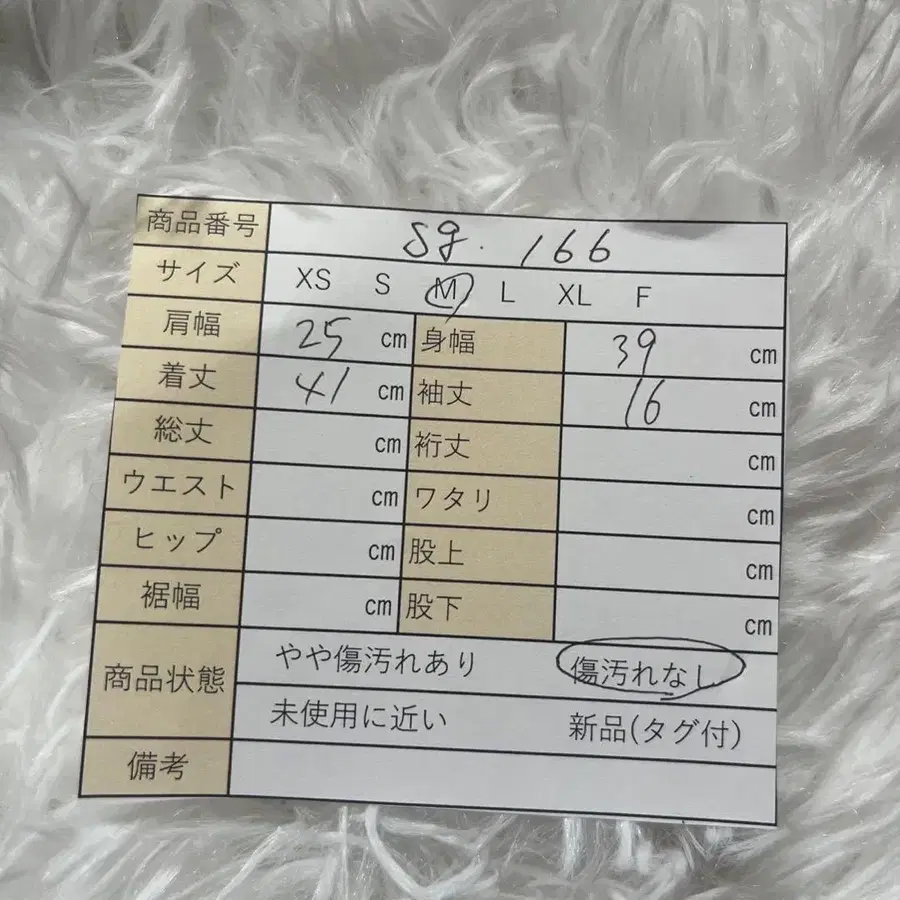 商品番号 sg. 166
サイズ XS S M L XL F
肩幅 25 cm 身幅 39 cm
着丈 41 cm 袖丈 16 cm
総丈 cm 裄丈 cm
ウエスト cm ワタリ cm
ヒップ cm 股上 cm
裾幅 cm 股下 cm
商品状態 やや傷汚れあり 傷汚れなし
未使用に近い 新品(タグ付)
備考